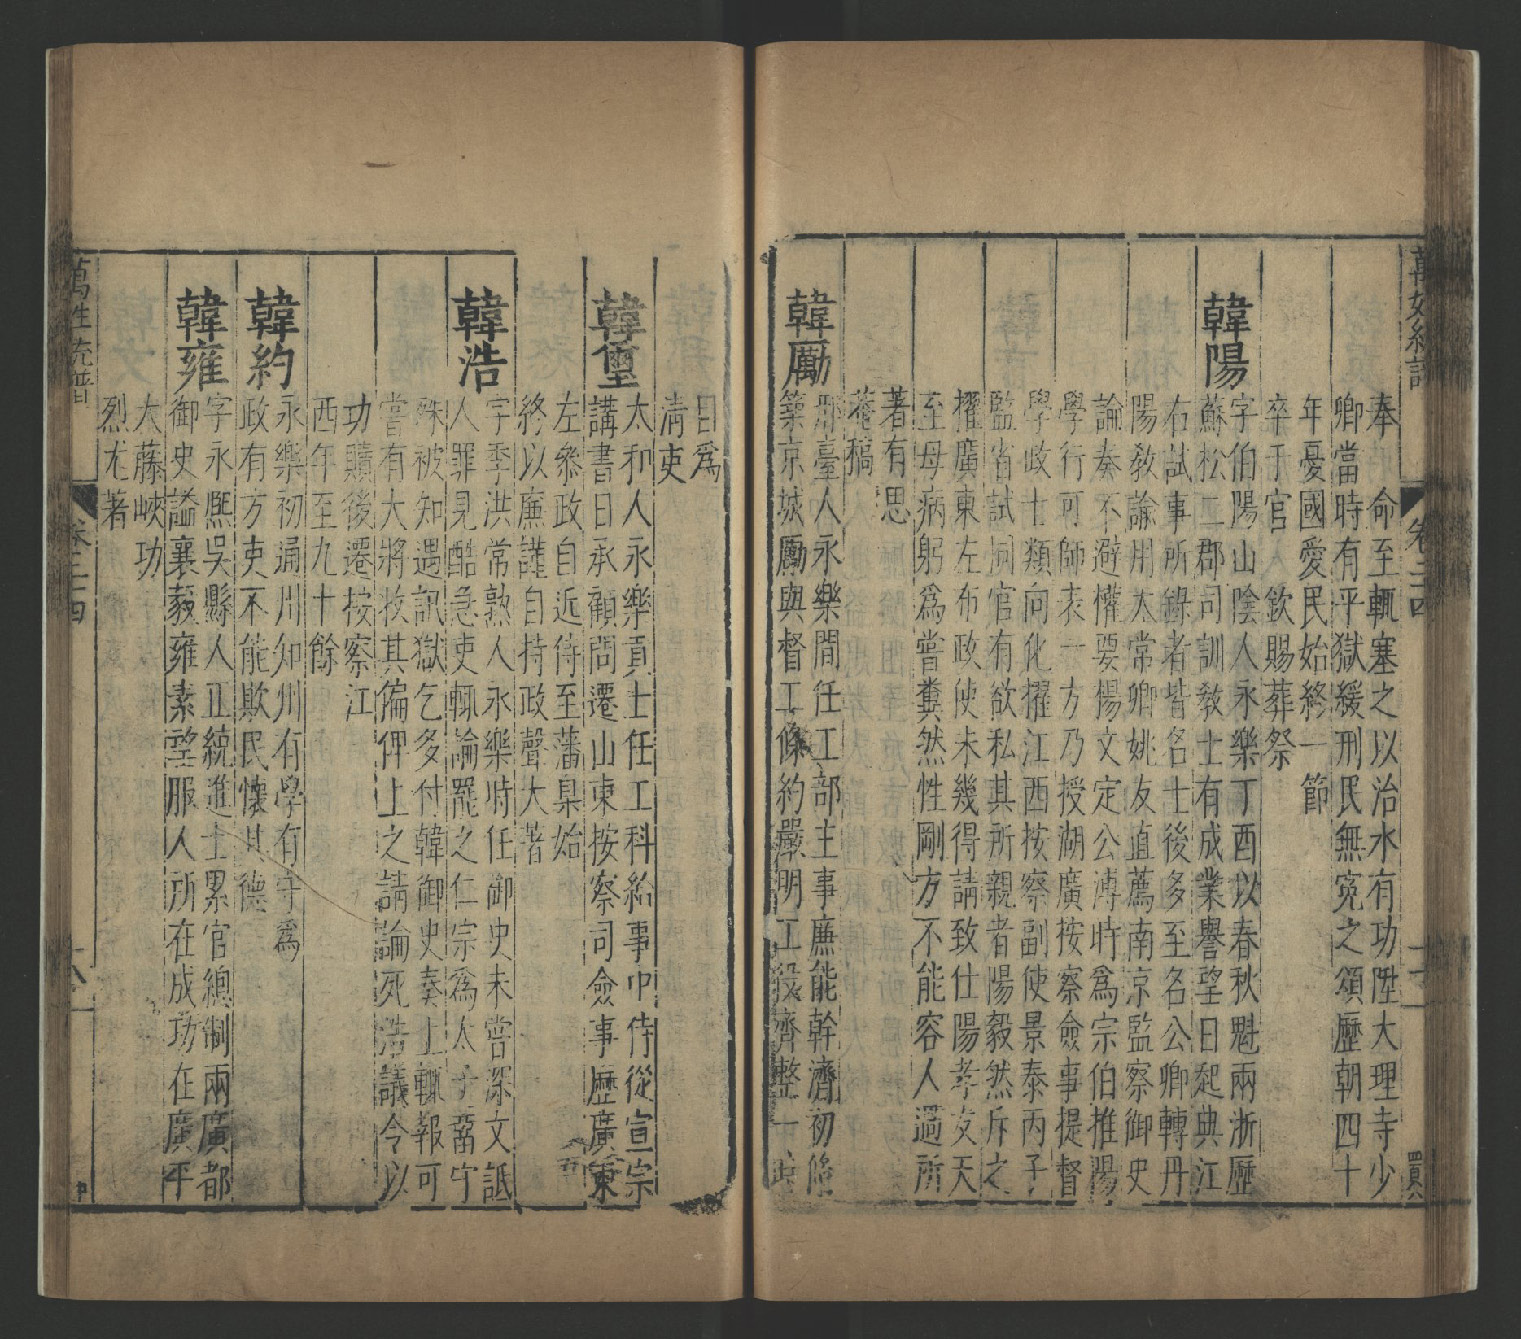 萬姓統譜 卷二十四
奉 命至輒塞之以治水有功陞大理寺少
卿當時有平獄緩刑民無寃之頌歷朝四十
年憂國愛民始終一節
卒于官人欽賜葬祭
韓陽
字伯陽山陰人永樂丁酉以春秋魁兩浙歷
蘇松二郡司訓敎士有成業譽望日起典江
右試事所錄者皆名士後多至名公卿轉丹
陽敎諭用太常卿姚友直薦南京監察御史
論奏不避懽要楊文定公溥時爲宗伯推陽
學行可師表一方乃授湖廣按察僉事提督
學政士類向化擢江西按察副使景泰丙子
監省試同官有欲私其所親者陽毅然斥之
擢廣東左布政使未幾得請致仕陽孝友天
至母病躬爲嘗糞然性剛方不能容人過所
著有思
菴稿
韓厲
邢臺人永樂間任工部主事廉能幹濟初脩
築京城勵與督工條約嚴明工役濟整一時
目爲
淸吏
韓璽
太和人永樂貢士任工科給事中侍從宣宗
講書日承顧問遷山東按察司僉事歷廣東
左叅政自近侍至藩臬始
終以廉謹自持政聲大著
韓浩
字季洪常熟人永樂時任御史未嘗深文詆
人罪見酷急吏輒論罷之仁宗爲太子畱守
殊被知遇訊獄乞多付韓御史奏上輒報可
嘗有大將敗其偏俾上之請論死浩議令以
功贖後遷按察江
西年至九十餘
韓約
永樂初通川知州有學有守爲
政有方吏不能欺民懷其德
韓雍
字永熙吳縣人正統進士累官總制兩廣都
御史謚襄毅雍素望服人所在成功在廣平
大藤峽功
烈尤著
萬姓統譜 卷二十四 六